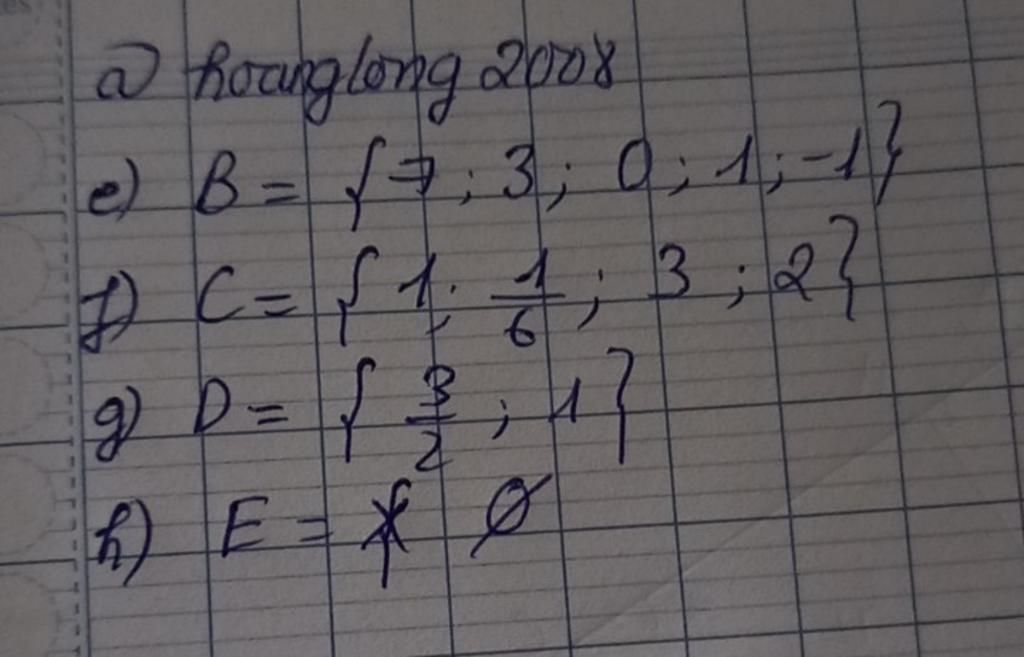 @ hoanglong 2008
e) B = {-7 ; 3 ; 0 ; 1 ; -1}
f) C = {1 ; 1/6 ; 3 ; 2}
g) D = {3/2 ; 1}
h) E = ∅